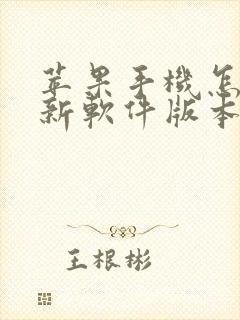 苹果手機怎
新軟件版本
王根彬